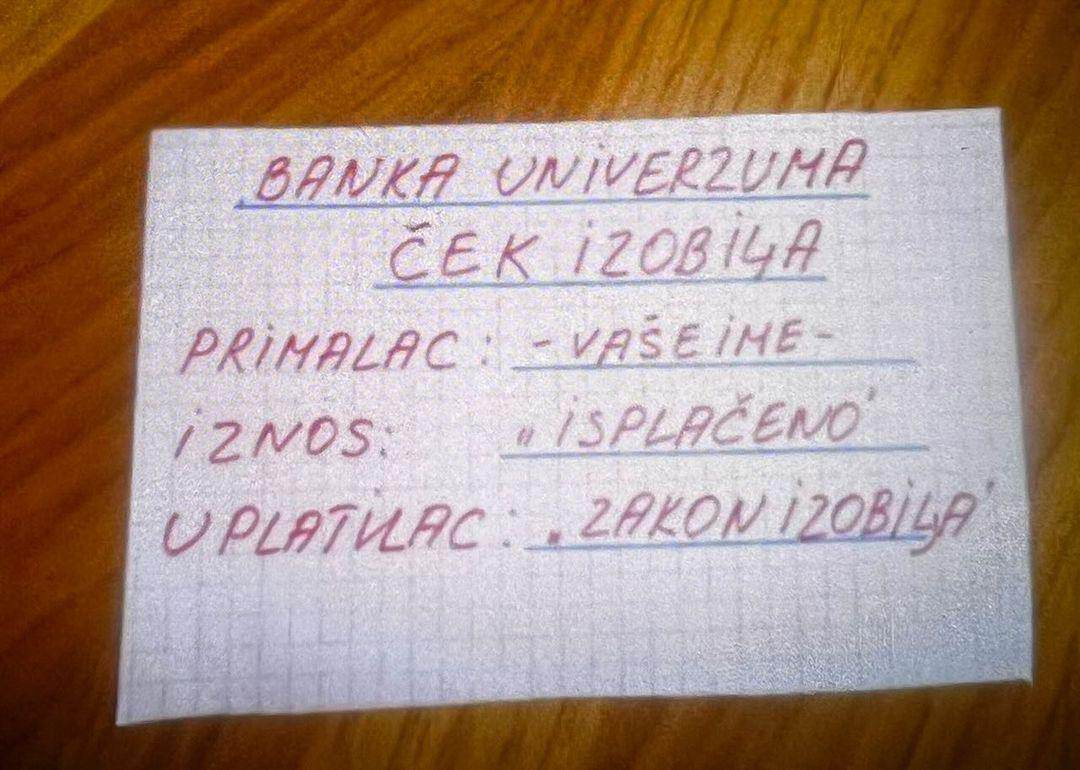 BANKA UNIVERZUMA
ČEK IZOBILJA
PRIMALAC: -VAŠE IME-
IZNOS: „ISPLAČENO"
UPLATILAC: „ZAKON IZOBILJA"